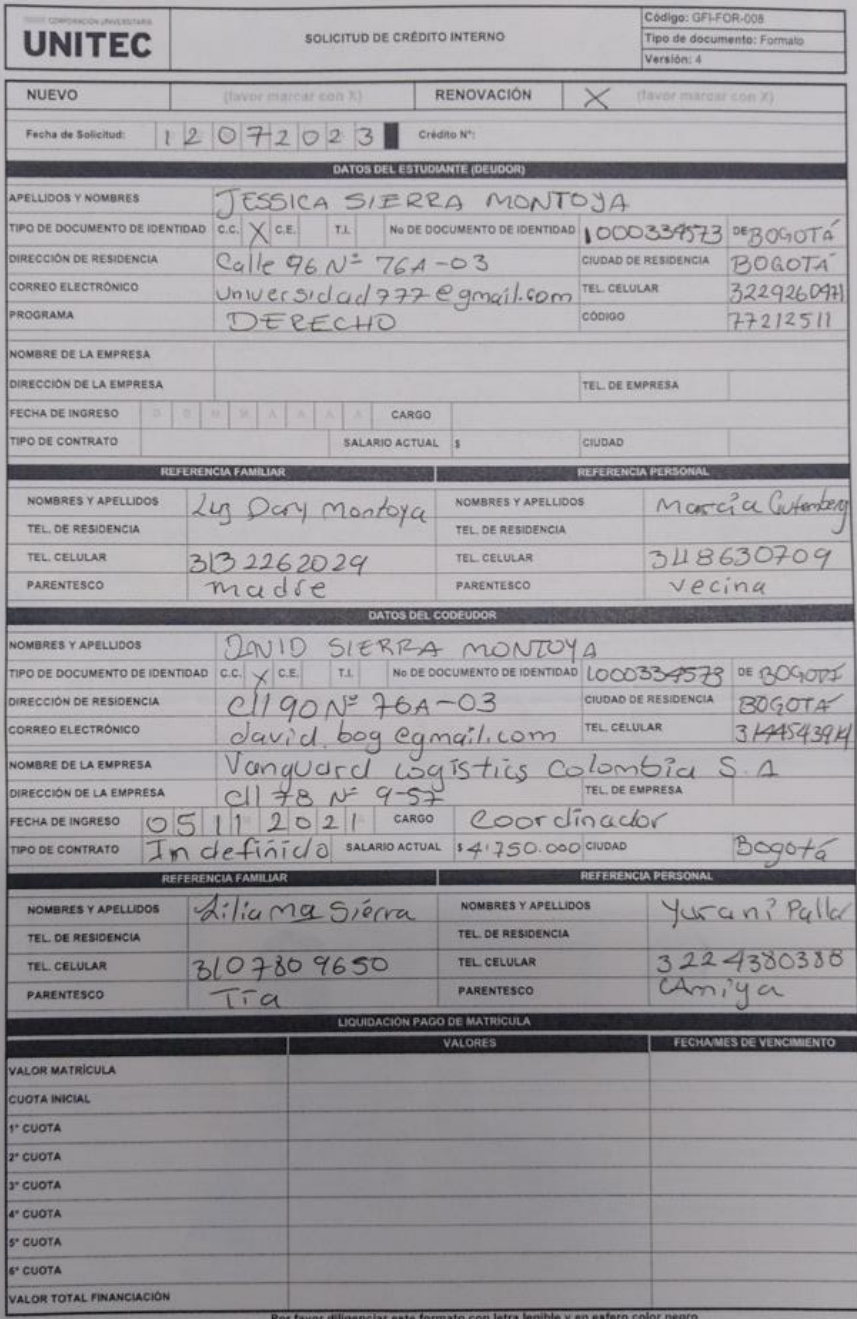 CORPORACIÓN UNIVERSITARIA
UNITEC
SOLICITUD DE CRÉDITO INTERNO
Código: GFI-FOR-008
Tipo de documento: Formato
Versión: 4
NUEVO (favor marcar con X) RENOVACIÓN X (favor marcar con X)
Fecha de Solicitud: 12072023 Crédito N°:
DATOS DEL ESTUDIANTE (DEUDOR)
APELLIDOS Y NOMBRES JESSICA SIERRA MONTOYA
TIPO DE DOCUMENTO DE IDENTIDAD C.C. X C.E. T.I. No DE DOCUMENTO DE IDENTIDAD 1000334573 DE BOGOTÁ
DIRECCIÓN DE RESIDENCIA Calle 96 Nº 76A-03 CIUDAD DE RESIDENCIA BOGOTÁ
CORREO ELECTRÓNICO universidad777@gmail.com TEL. CELULAR 3229260971
PROGRAMA DERECHO CÓDIGO 77212511
NOMBRE DE LA EMPRESA
DIRECCIÓN DE LA EMPRESA TEL. DE EMPRESA
FECHA DE INGRESO D D M M A A A A CARGO
TIPO DE CONTRATO SALARIO ACTUAL $ CIUDAD
REFERENCIA FAMILIAR REFERENCIA PERSONAL
NOMBRES Y APELLIDOS Luz Dary Montoya NOMBRES Y APELLIDOS Marcia Gutemberg
TEL. DE RESIDENCIA TEL. DE RESIDENCIA
TEL. CELULAR 3132262029 TEL. CELULAR 3118630709
PARENTESCO madre PARENTESCO vecina
DATOS DEL CODEUDOR
NOMBRES Y APELLIDOS DAVID SIERRA MONTOYA
TIPO DE DOCUMENTO DE IDENTIDAD C.C. X C.E. T.I. No DE DOCUMENTO DE IDENTIDAD 1000334573 DE BOGOTÁ
DIRECCIÓN DE RESIDENCIA Cll 90 Nº 76A-03 CIUDAD DE RESIDENCIA BOGOTÁ
CORREO ELECTRÓNICO david.bog@gmail.com TEL. CELULAR
NOMBRE DE LA EMPRESA Vanguard Logistics Colombia S.A
DIRECCIÓN DE LA EMPRESA Cll 78 Nº 9-57 TEL. DE EMPRESA
FECHA DE INGRESO 05112021 CARGO Coordinador
TIPO DE CONTRATO Indefinido SALARIO ACTUAL $ 4'750.000 CIUDAD Bogotá
REFERENCIA FAMILIAR REFERENCIA PERSONAL
NOMBRES Y APELLIDOS Liliama Sierra NOMBRES Y APELLIDOS Yurani
TEL. DE RESIDENCIA TEL. DE RESIDENCIA
TEL. CELULAR 3107809650 TEL. CELULAR 3224380388
PARENTESCO Tía PARENTESCO Amiga
LIQUIDACIÓN PAGO DE MATRÍCULA
VALORES FECHA/MES DE VENCIMIENTO
VALOR MATRÍCULA
CUOTA INICIAL
1° CUOTA
2° CUOTA
3° CUOTA
4° CUOTA
5° CUOTA
6° CUOTA
VALOR TOTAL FINANCIACIÓN
Por favor diligenciar este formato con letra legible y en esfero color negro